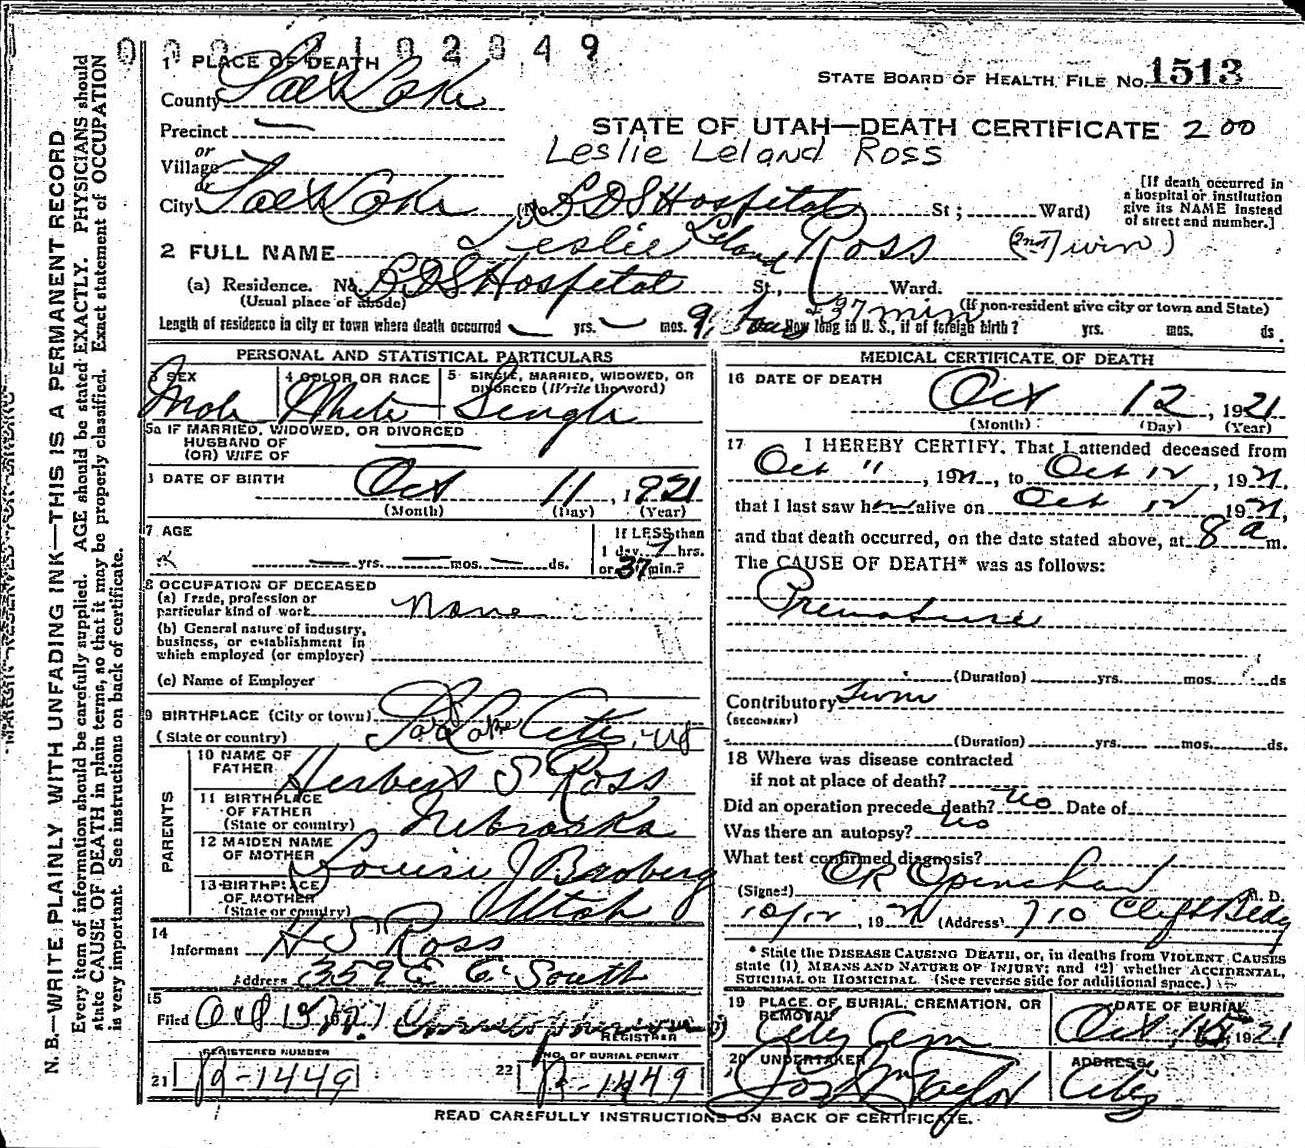 1 PLACE OF DEATH
STATE BOARD OF HEALTH FILE No. 1513
County Salt Lake
Precinct —
STATE OF UTAH—DEATH CERTIFICATE 200
or
Leslie Leland Ross
Village
or
City Salt Lake (No. LDS Hospital St; Ward)
[If death occurred in a hospital or institution give its NAME instead of street and number.]
2 FULL NAME Leslie Leland Ross (2nd Twin)
(a) Residence. No. LDS Hospital St., Ward.
(Usual place of abode) (If non-resident give city or town and State)
Length of residence in city or town where death occurred — yrs. — mos. 37 min How long in U. S., if of foreign birth? yrs. mos. ds.
PERSONAL AND STATISTICAL PARTICULARS
3 SEX Male
4 COLOR OR RACE White
5 SINGLE, MARRIED, WIDOWED, OR DIVORCED (Write the word) Single
5a IF MARRIED, WIDOWED, OR DIVORCED
HUSBAND OF
(OR) WIFE OF
DATE OF BIRTH Oct 11, 1921
(Month) (Day) (Year)
7 AGE
— yrs. — mos. — ds.
If LESS than
1 day 7 hrs.
or 37 min.?
8 OCCUPATION OF DECEASED
(a) Trade, profession or
particular kind of work None
(b) General nature of industry,
business, or establishment in
which employed (or employer)
(c) Name of Employer
9 BIRTHPLACE (City or town) Salt Lake City,
(State or country)
PARENTS
10 NAME OF
FATHER Herbert S Ross
11 BIRTHPLACE
OF FATHER
(State or country) Nebraska
12 MAIDEN NAME
OF MOTHER Louise J
13 BIRTHPLACE
OF MOTHER
(State or country) Utah
14
Informant H S Ross
Address 359 E 6 South
15
Filed Oct
REGISTRAR
REGISTERED NUMBER
21 -1449
NO. OF BURIAL PERMIT
22 -1449
MEDICAL CERTIFICATE OF DEATH
16 DATE OF DEATH
Oct 12, 1921
(Month) (Day) (Year)
17 I HEREBY CERTIFY, That I attended deceased from
Oct 11, 1921, to Oct 12, 1921,
that I last saw h alive on Oct 12 1921,
and that death occurred, on the date stated above, at 8 a m.
The CAUSE OF DEATH* was as follows:
Premature
(Duration) yrs. mos. ds
Contributory Twin
(SECONDARY)
(Duration) yrs. mos. ds.
18 Where was disease contracted
if not at place of death?
Did an operation precede death? no Date of
Was there an autopsy? no
What test confirmed diagnosis?
(Signed) O R Openshaw M. D.
10/12, 1921 (Address) 710 Clift Bldg
* State the DISEASE CAUSING DEATH, or, in deaths from VIOLENT CAUSES
state (1) MEANS AND NATURE OF INJURY; and (2) whether ACCIDENTAL,
SUICIDAL OR HOMICIDAL. (See reverse side for additional space.)
19 PLACE OF BURIAL, CREMATION, OR
REMOVAL City Cem
DATE OF BURIAL
Oct 15, 1921
20 UNDERTAKER
Taylor
ADDRESS
City
READ CAREFULLY INSTRUCTIONS ON BACK OF CERTIFICATE.
N. B.—WRITE PLAINLY WITH UNFADING INK—THIS IS A PERMANENT RECORD
Every item of information should be carefully supplied. AGE should be stated EXACTLY. PHYSICIANS should
state CAUSE OF DEATH in plain terms, so that it may be properly classified. Exact statement of OCCUPATION
is very important. See instructions on back of certificate.